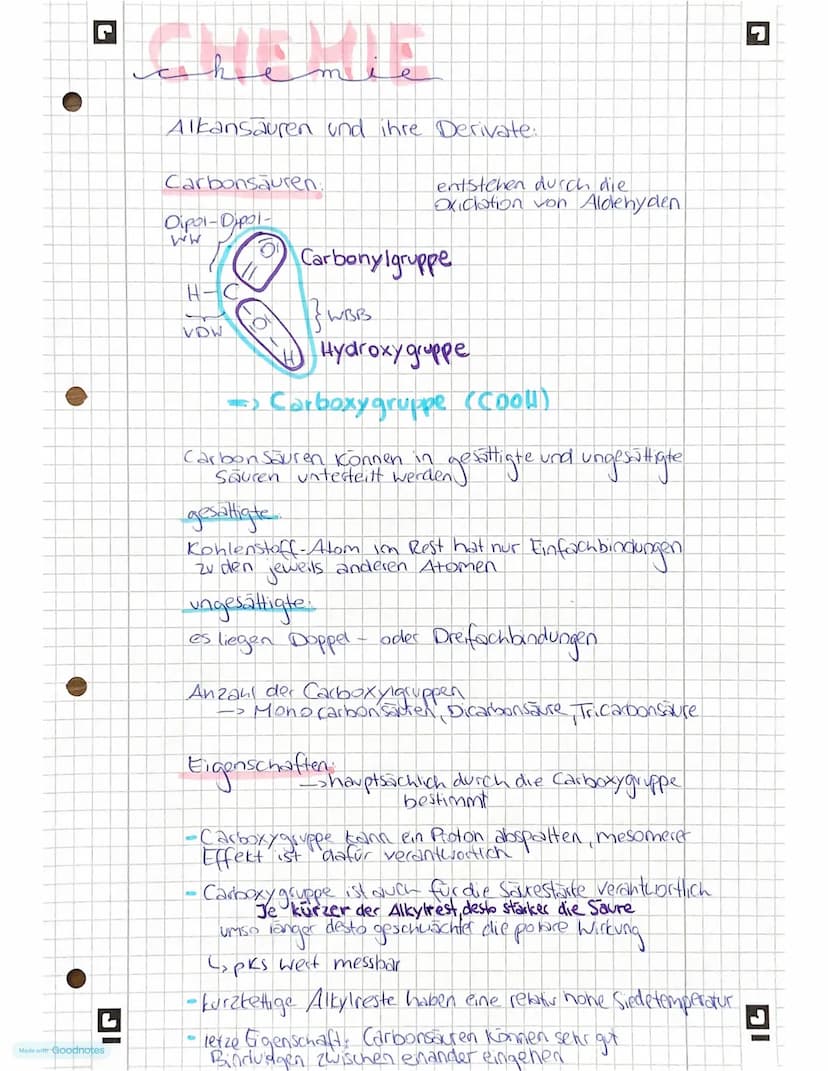 CHEMIE
chemie
Alkansäuren und ihre Derivate:
Carbonsäuren:
entstehen durch die
Oxidation von Aldehyden
Dipol-Dipol-
WW
O
Carbonylgruppe
H-C
} WBB
VDW
O
H
Hydroxygruppe
=> Carboxygruppe (COOH)
Carbonsäuren können in gesättigte und ungesättigte
Säuren unterteilt werden
gesättigte:
Kohlenstoff-Atom im Rest hat nur Einfachbindungen
zu den jeweils anderen Atomen
ungesättigte:
es liegen Doppel- oder Dreifachbindungen
Anzahl der Carboxylgruppen
-> Monocarbonsäuren, Dicarbonsäure, Tricarbonsäure
Eigenschaften:
-> hauptsächlich durch die Carboxygruppe
bestimmt
- Carboxygruppe kann ein Proton abspalten, mesomerer
Effekt ist dafür verantwortlich
- Carboxygruppe ist auch für die Säurestärke verantwortlich
Je kürzer der Alkylrest, desto stärker die Säure
umso länger desto geschwächter die polare Wirkung
↳ pks wert messbar
- kurzkettige Alkylreste haben eine relativ hohe Siedetemperatur
- letze Eigenschaft: Carbonsäuren können sehr gut
Bindungen zwischen einander eingehen
Made with Goodnotes